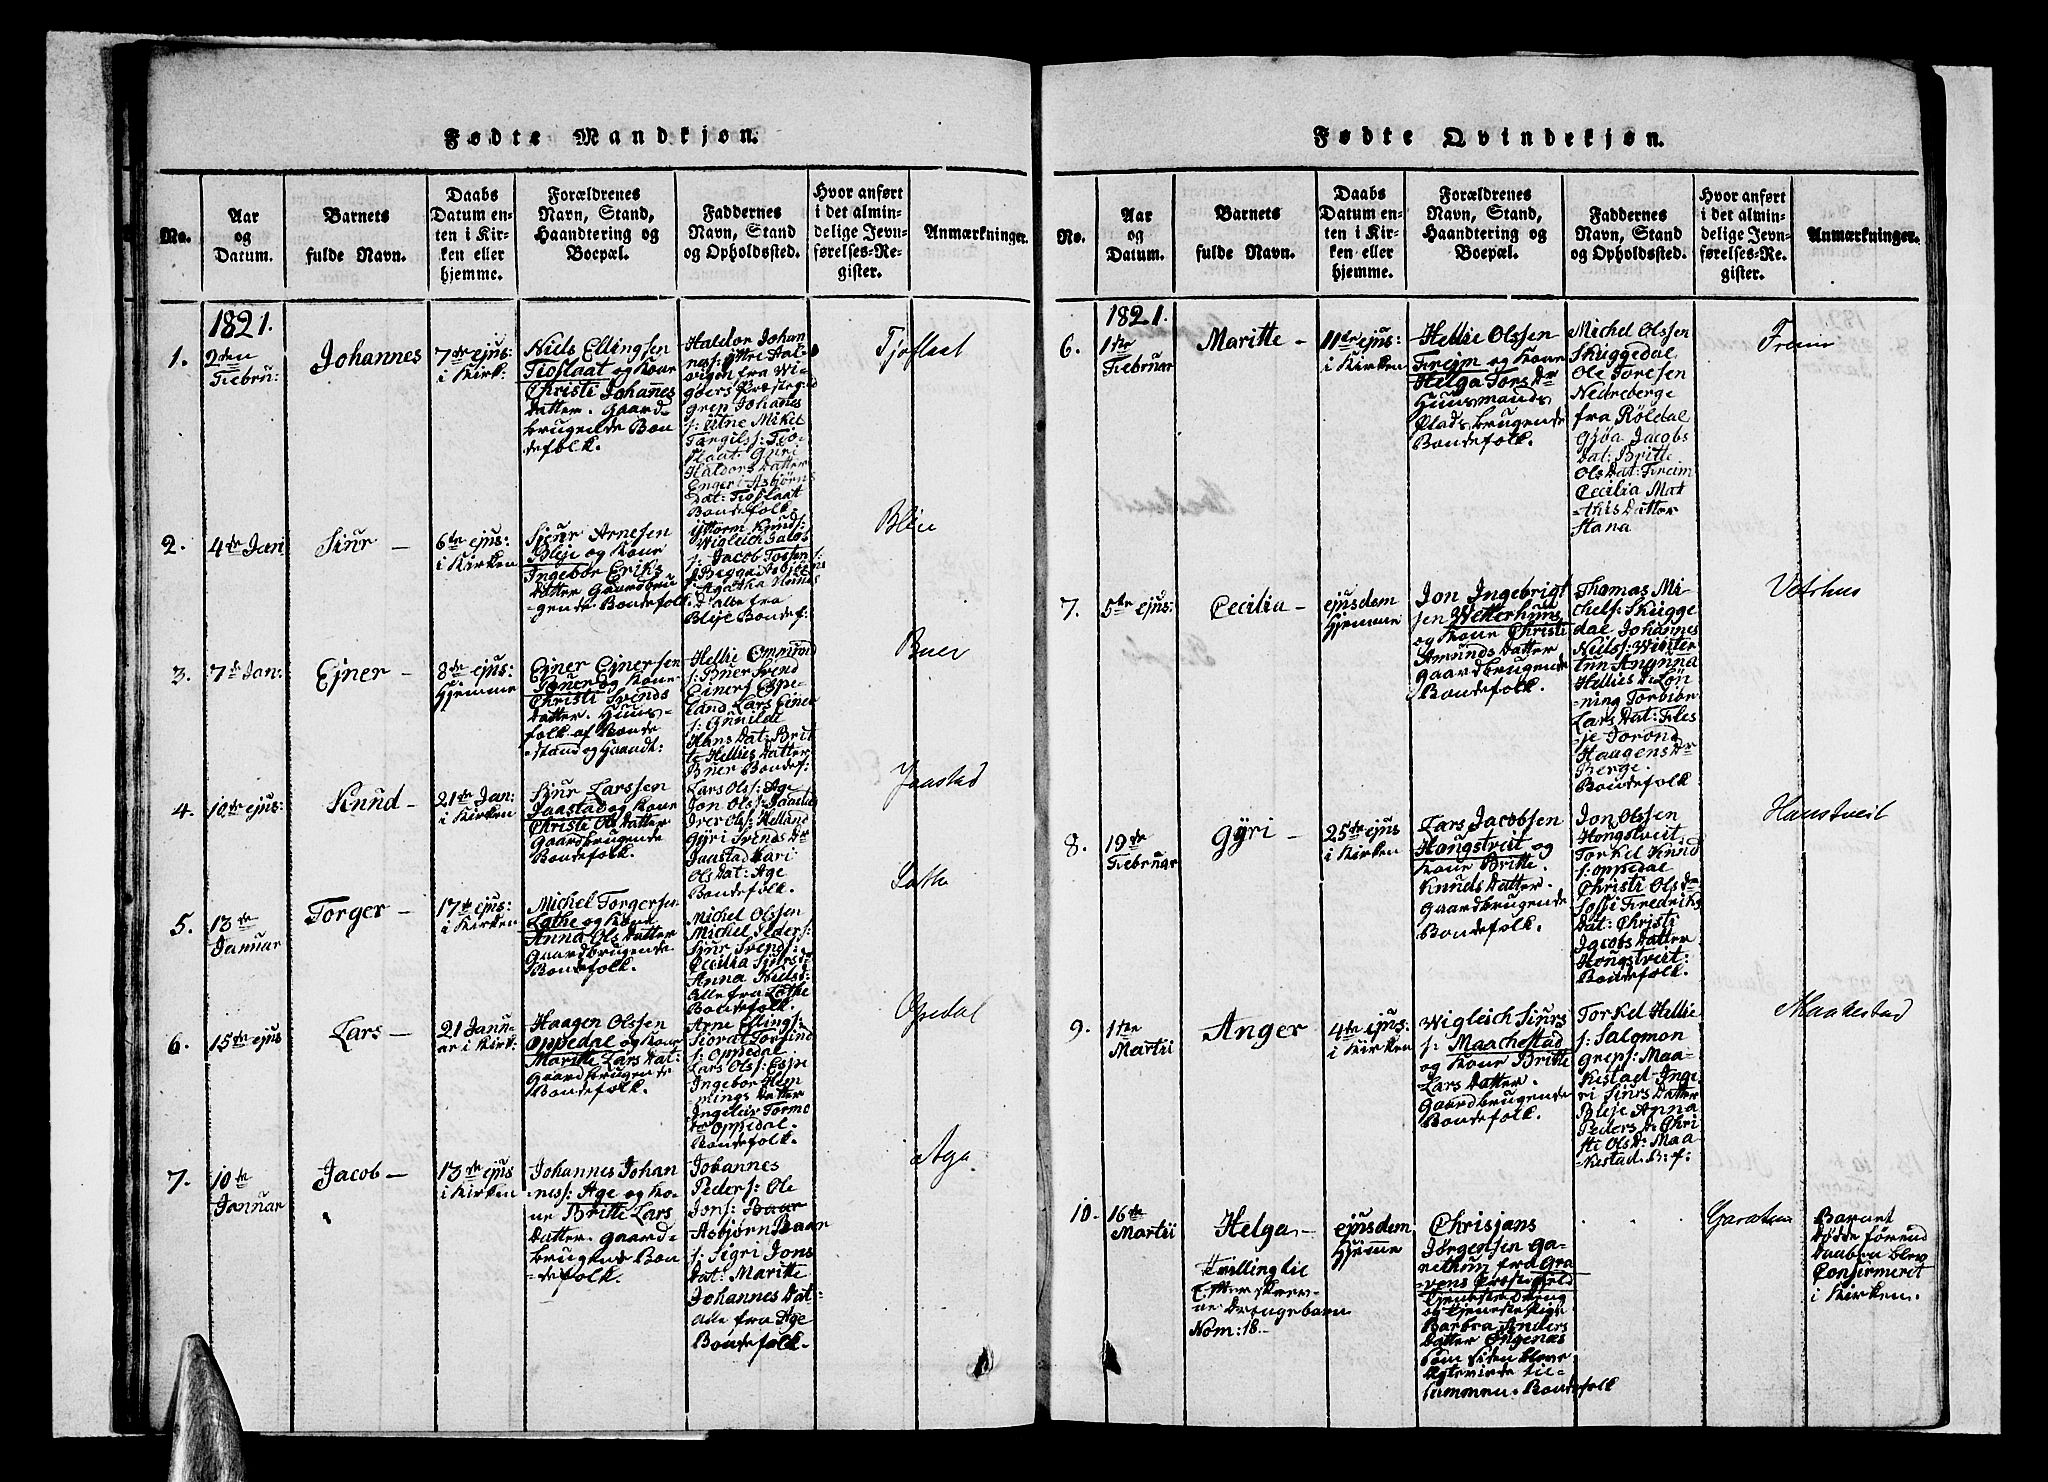 Fødte Mandkjøn.
No.
Aar
og
Datum.
Barnets
fulde Navn.
Daabs
Datum en-
ten i Kir-
ken eller
hjemme.
Forældrenes
Navn, Stand,
Haandtering og
Boepæl.
Faddernes
Navn, Stand
og Opholdssted.
Hvor anført
i det almin-
delige Jevn-
førelses-Re-
gister.
Anmærkninger.
1821.
1.
2den
Febru:
Johannes
7de ejus:
i Kirk.
Niels Ellingsen
Tioflaat og Kone
Christi Johannes
Datter. Gaard-
brugende Bon
defolk.
Haldor Johan
nes: ÿttre Aal-
vigen fra Wi-
göers Præstegield
Grep Johannes
s: Utne Mikel
Targilss: Tio-
flaat Guri
Haldors Datter
Engeri Asbjörns
Dat: Tioflaat
Bondefolk.
Tjoflaat
2.
4de Jan
Siur —
6te ejus:
i Kirken
Sjur Arnesen
Bleje og Kone
Ingebor Eriks
Datter Gaardbru
gende Bondefolk.
Guttorm Knuds:
Wigleich Jacob
s: Jacob Tossen
Begga Asbjöens
Agatha Knuds
D: alle fra
Bleje Bondef:
Bleie
3.
7de Jan:
Ejner —
8de ejus:
Hjemme
Ejner Ejnersen
Buer og Kone
Christi Svends
Datter. Huus-
folk af Bonde
stand og Haandt:
Hellie Ommund
s: Buer Svend
Einers: Espe-
land Lars Einer
s: Gunilde
Hans Dat: Brit
te Hellies Datter
Buer Bondef:
Buer
4.
10de ejus:
Knud —
21de Jan:
i Kirken
Sjur Larssen
Jaastad og Kone
Christi Ols Datter
Gaardbrugende
Bondefolk.
Lars Olss: Age
Jon Olss: Jaastad
Iver Ols: Helland
Gÿri Svends Dr
Jaastad Kari
Ols Dat: Age
Bondefolk.
Jaastad
5.
13de
Januar
Torger —
17de ejus:
i Kirken
Michel Torgersen
Lathe og Kone
Anna Ols Datter
Gaardbrugende
Bondefolk.
Michel Olssen
Michel Elders:
Sjur Svends:
Cecilia Siurs Dr
Anna Niels D:
Alle fra Lathe
Bondefolk.
Lothe
6.
15de ejus
Lars —
21 Janu-
ar i Kirk:
Haagen Olssen
Oppedal og Kone
Maritte Lars Dat:
Gaardbrugende
Bondefolk.
Arne Ellings:
Siovat Torfind
s: Oppedal
Lars Olss: Espe
Ingebor Hem
mings Datter
Ingeleiv Tormo
Dr Oppedal.
Bondefolk.
Opedal
7.
10de
Januar
Jacob —
13de ejus
i Kirken
Johannes Johan
ness: Age og Ko-
ne Britte Lars
Datter. Gaard-
brugens Bon
defolk.
Johannes
Peders: Ole
Jons: Baar
Asbjörn Baar
s: Sigri Jons
Dat: Maritte
Johannes Dat:
Alle fra Age
Bondefolk.
Aga
Fødte Qvindekjøn.
No.
Aar
og
Datum.
Barnets
fulde Navn.
Daabs
Datum en-
ten i Kir-
ken eller
hjemme.
Forældrenes
Navn, Stand,
Haandtering og
Boepæl.
Faddernes
Navn, Stand
og Opholdssted.
Hvor anført
i det almin-
delige Jevn-
førelses-Re-
gister.
Anmærkninger.
1821.
6.
1ste
Februar
Maritte —
11te ejus:
i Kirken
Hellie Olssen
Freim og Kone
Helga Tors Dr
Huusmands
Plads brugende
Bondefolk.
Michel Olssen
Skuggedal
Ole Toresen
Nedreberge
fra Röldal
Gjöa Jacobs
Dat: Britte
Ols Dat: Freim
Cecilia Mat
this Datter
Hana
Freim
7.
5te ejus:
Cecilia —
ejusdem
Hjemme
Jon Ingebrigt
sen Wetterhuus
og Kone Christi
Amunds Datter
Gaardbrugende
Bondefolk.
Thomas Mi
chels: Skugge
dal Johannes
Niels: Winter
tun Anunna
Hellies D: Løn
ning Torbiör
Lars Dat: Fles
je Jorond
Haagens Dr
Berge.
Bondefolk.
Vetrhus
8.
19de
Februar
Gÿri —
25de ejus
i Kirken
Lars Jacobsen
Hougstveit og
Kone Britte
Knuds Datter.
Gaardbrugende
Bondefolk.
Jon Olssen
Hongstveit
Torkel Knud
s: Oppedal
Christi Ols Dr
Sossi Fredriks
Dat: Christi
Jacobs Datter
Hougstveit:
Bondefolk.
Haustveit
9.
1ste
Martii
Anger
4de ejus:
i Kirken
Wigleich Siurs
s: Maachestad
og Kone Britte
Lars Datter.
Gaardbrugende
Bondefolk.
Torkel Hellie
s: Salomon
Greps: Maa-
kestad Inge
ri Siurs Datter
Bleje Anna
Peders D: Chri
sti Ols D: Maa
kestad. B: f:
Maakestad
10.
16de
Martii
Helga —
Tvillinglie
Efterskrev-
ne Drengebarn
Nom: 18.
ejusdem
Hjemme
Chrisjans
Jörgensen Ga-
rethun fra Gra
vens Præstegield
Tjeneste Dreng
og Tjeneste Pige
Barbra Anders
Datter Engenæs
som siden bleve
Ægteviede til-
sammen. Bondefolk
Garathun
Barnet
Døde førend
Daaben blev
Confirmeret
i Kirken.